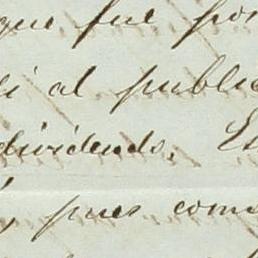 que fue pos
di al public
dividendo. Es
pues como